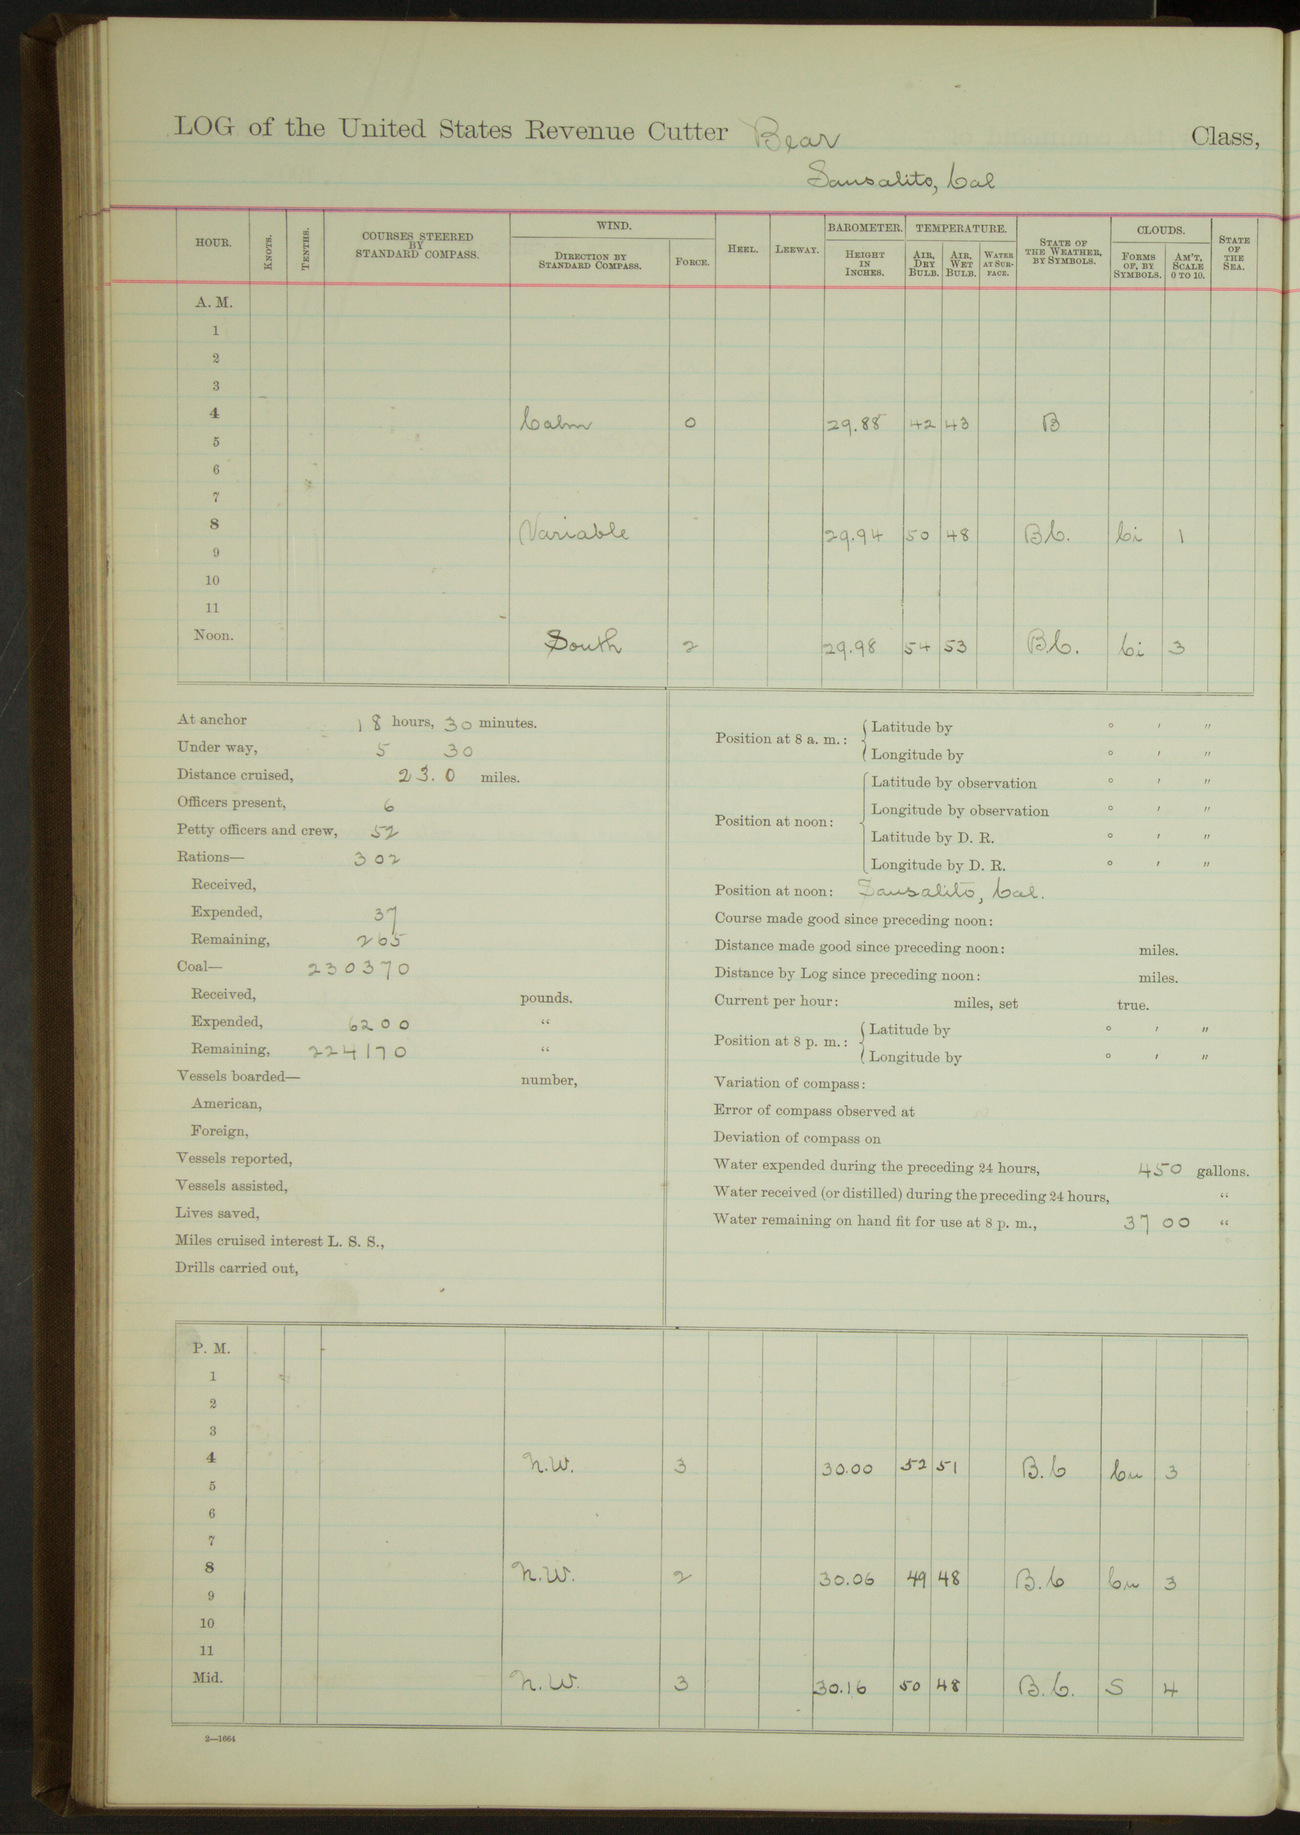 LOG of the United States Revenue Cutter Bear Class,
Sausalito, Cal
HOUR. KNOTS. TENTHS. COURSES STEERED BY STANDARD COMPASS. WIND. DIRECTION BY STANDARD COMPASS. FORCE. HEEL. LEEWAY. BAROMETER. HEIGHT IN INCHES. TEMPERATURE. AIR, DRY BULB. AIR, WET BULB. WATER AT SURFACE. STATE OF THE WEATHER, BY SYMBOLS. CLOUDS. FORMS OF, BY SYMBOLS. AM'T, SCALE 0 TO 10. STATE OF THE SEA.
A. M.
1
2
3
4 Calm 0 29.88 42 43 B
5
6
7
8 Variable 29.94 50 48 B.C. Ci 1
9
10
11
Noon. South 2 29.98 54 53 B.C. Ci 3
At anchor 18 hours, 30 minutes.
Under way, 5 30
Distance cruised, 23.0 miles.
Officers present, 6
Petty officers and crew, 52
Rations— 302
Received,
Expended, 37
Remaining, 265
Coal— 230370
Received, pounds.
Expended, 6200 “
Remaining, 224170 “
Vessels boarded— number,
American,
Foreign,
Vessels reported,
Vessels assisted,
Lives saved,
Miles cruised interest L. S. S.,
Drills carried out,
Position at 8 a. m.: Latitude by ° ′ ″
Longitude by ° ′ ″
Position at noon: Latitude by observation ° ′ ″
Longitude by observation ° ′ ″
Latitude by D. R. ° ′ ″
Longitude by D. R. ° ′ ″
Position at noon: Sausalito, Cal.
Course made good since preceding noon:
Distance made good since preceding noon: miles.
Distance by Log since preceding noon: miles.
Current per hour: miles, set true.
Position at 8 p. m.: Latitude by ° ′ ″
Longitude by ° ′ ″
Variation of compass:
Error of compass observed at
Deviation of compass on
Water expended during the preceding 24 hours, 450 gallons.
Water received (or distilled) during the preceding 24 hours, “
Water remaining on hand fit for use at 8 p. m., 3700 “
P. M.
1
2
3
4 N.W. 3 30.00 52 51 B.C Cu 3
5
6
7
8 N.W. 2 30.06 49 48 B.C Cu 3
9
10
11
Mid. N.W. 3 30.16 50 48 B.C. S 4
2—1664